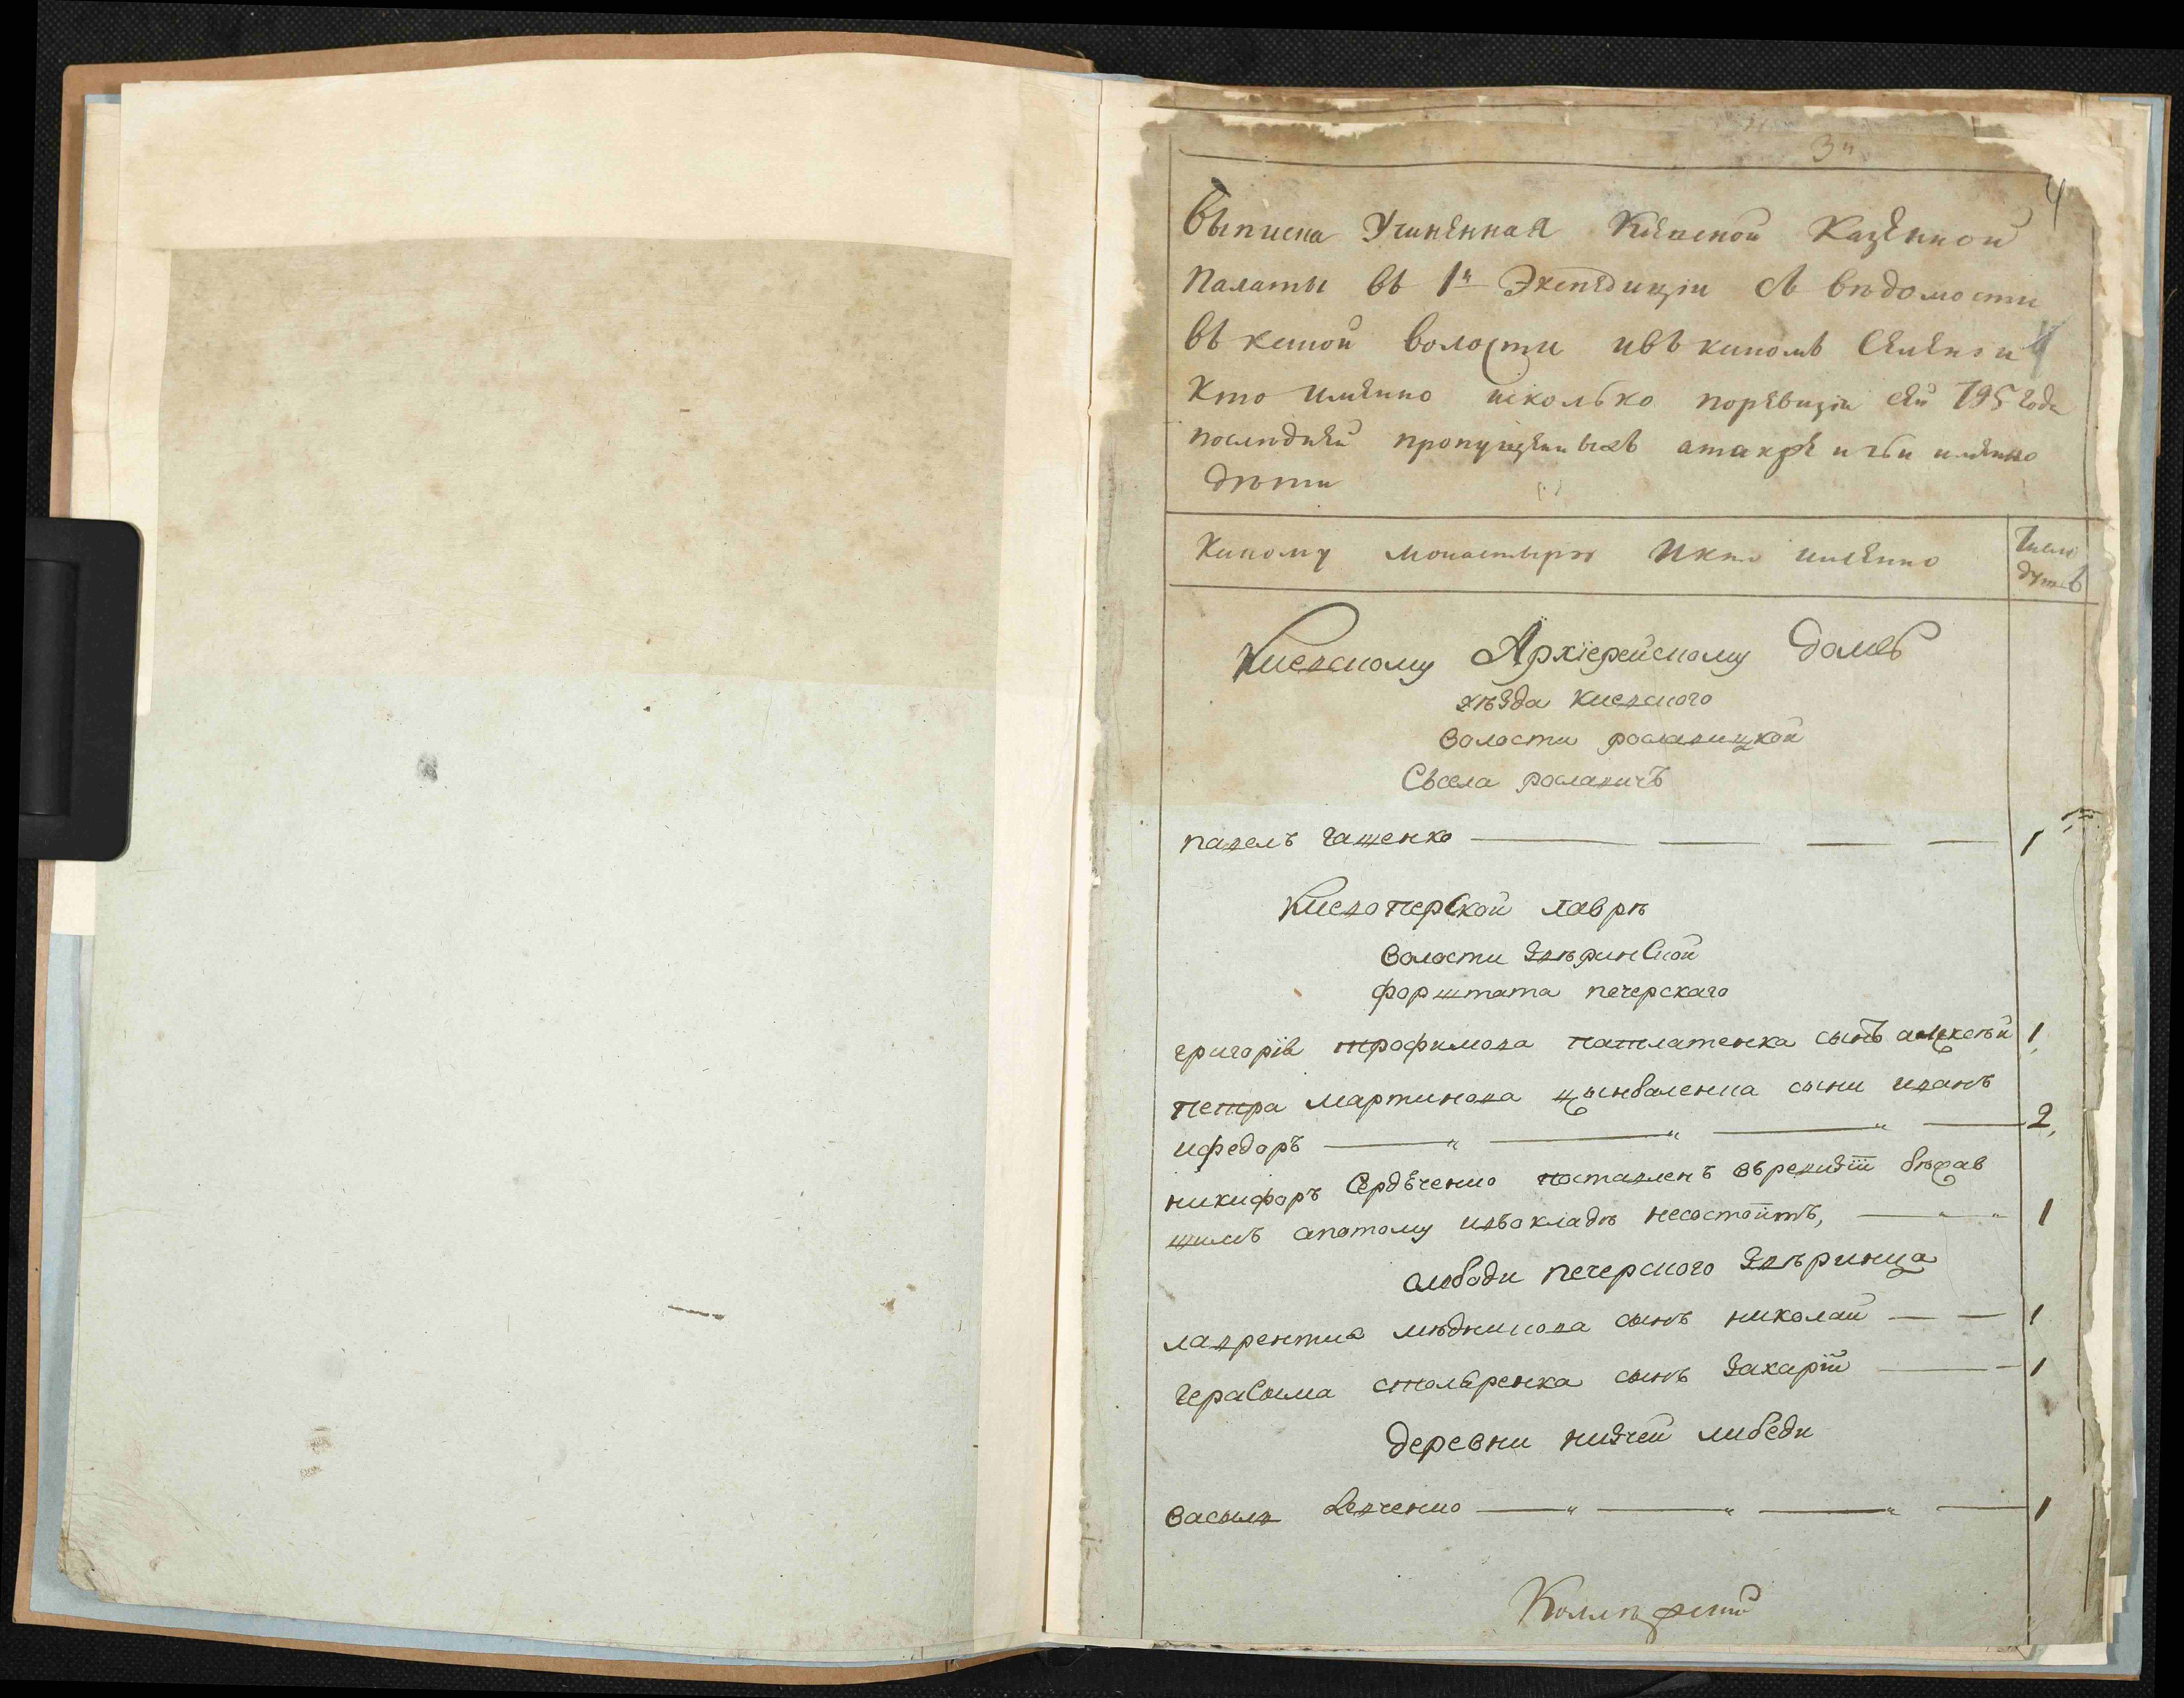 3й
4
Выписка Учинѣнная Кіевской Казѣнной
Палаты въ 1й Экспедиціи съ вѣдомости
въ какой волости ивъ какомъ селѣніи
Кто имѣнно исколько поревизіи сей 795 года
послѣдней пропущенныхъ атакже ичьи имянно
дѣти
Какому монастырю Икто имѣнно
Число
душъ
Киевскому Архіерейскому Домѣ
уѣзда Киевского
Волости рославицкой
Съсела рославичъ
павелъ гащенко 1
Киевопечерской лаврѣ
Волости Звѣринской
форштата печерскаго
григорія трофимова патлатенка сынъ алексѣй 1
петра мартинова цынбаленка сыни иванъ
ифедоръ 2
никифоръ Сердѣченко поставленъ въревизіи бѣжав
шимъ апотому ивъокладѣ несостоитъ, 1
слободи печерского Звѣринца
лаврентия мѣдникова сынъ николай 1
герасыма столѣренка сынъ Захарій 1
деревни нижчей либеди
Васыль левченко 1